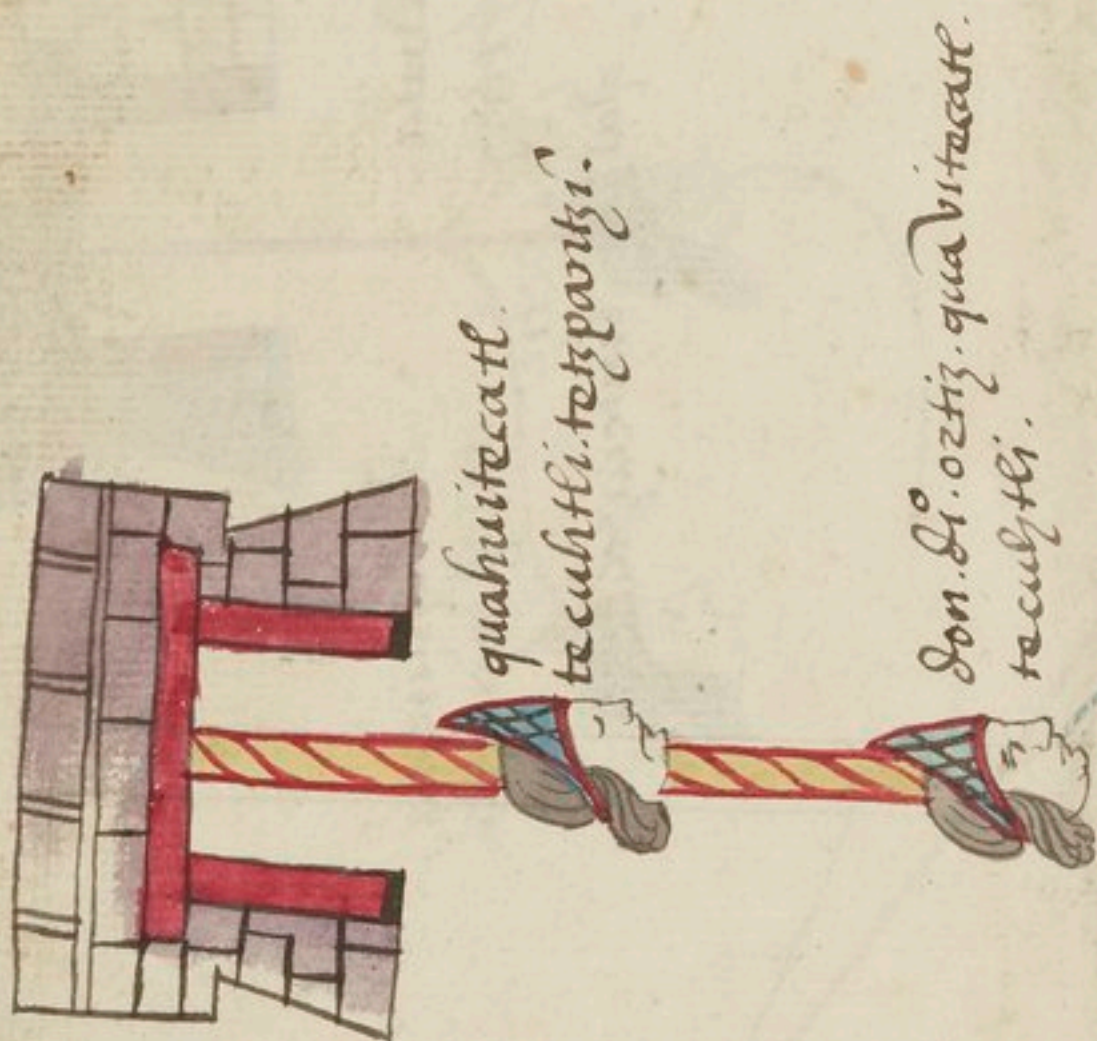 quahuitecatl.
tecuhtli.tetzpantzi.
don.di^o.oztiz.quaVitecatl.
tecuhtli.